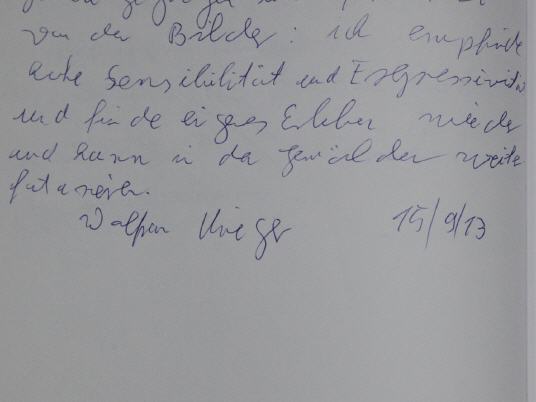 von der Bilder: ich empfinde
hohe Sensibilität und Expressivität
und finde eigenes Erleben wieder
und kann in da Gemäl der weite
fatasieren.
Wolfram Krieger 15/9/13